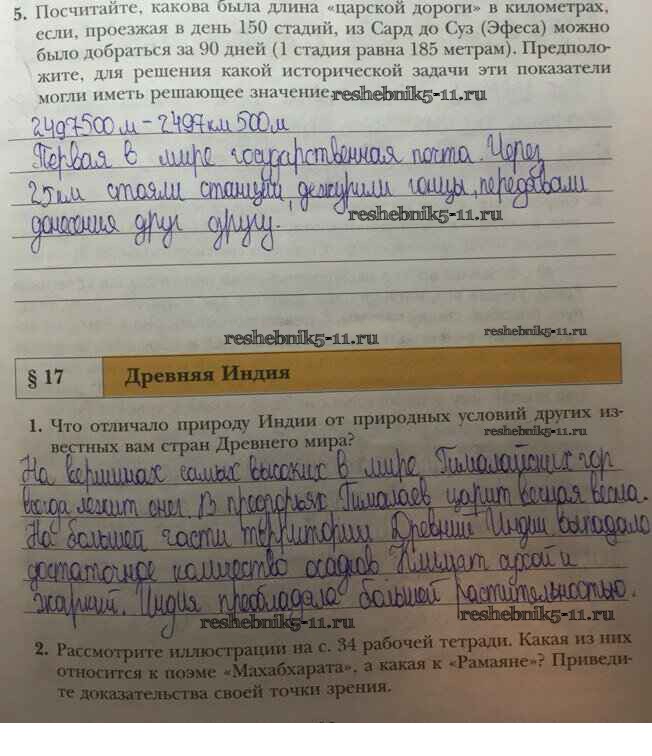 5. Посчитайте, какова была длина «царской дороги» в километрах,
если, проезжая в день 150 стадий, из Сард до Суз (Эфеса) можно
было добраться за 90 дней (1 стадия равна 185 метрам). Предполо-
жите, для решения какой исторической задачи эти показатели
могли иметь решающее значение.
reshebnik5-11.ru
2497500м – 2497км 500м
Первая в мире государственная почта. Через
25км стояли станции, дежурили гонцы, передавали
reshebnik5-11.ru
донесения друг другу.
reshebnik5-11.ru
reshebnik5-11.ru
§ 17 Древняя Индия
1. Что отличало природу Индии от природных условий других из-
вестных вам стран Древнего мира?
reshebnik5-11.ru
На вершинах самых высоких в мире Гималайских гор
всегда лежит снег. В предгорьях Гималаев царит вечная весна.
На большей части территории Древний Индии выпадало
достаточное количество осадков Климат сухой и
жаркий. Индия преобладала большей растительностью.
reshebnik5-11.ru
2. Рассмотрите иллюстрации на с. 34 рабочей тетради. Какая из них
относится к поэме «Махабхарата», а какая к «Рамаяне»? Приведи-
те доказательства своей точки зрения.